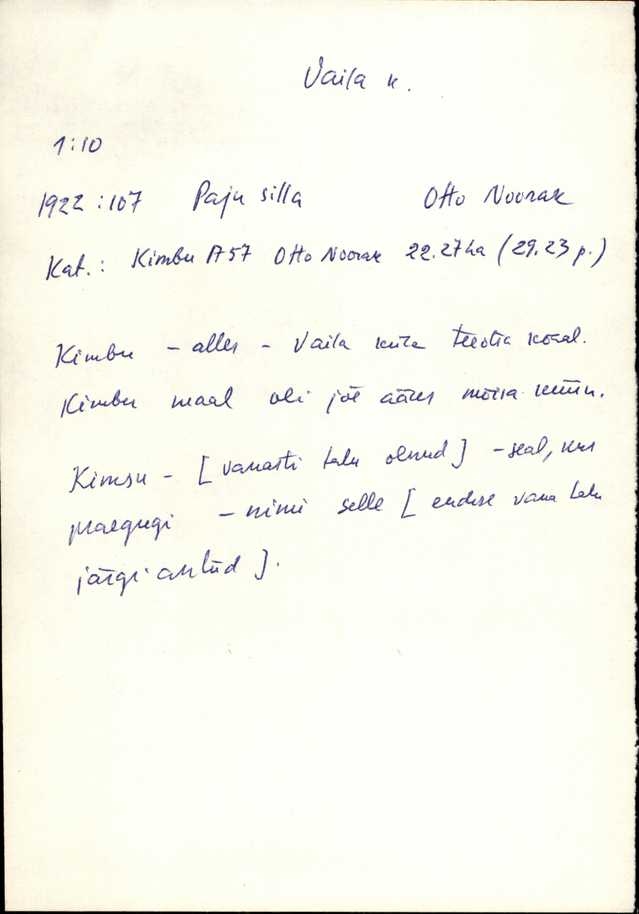 Vaila k.
1:10
1922:107 Paju silla Otto Noorak
Kat.: Kimbu A57 Otto Noorak 22.27 ha (29.23 p.)
Kimbu – alles – Vaila küla kohal.
Kimbu maal oli jõe ääres mõisa küün.
[vanasti talu olnud] – seal, kus
praegugi – nimi selle [endise vana talu
järgi antud].